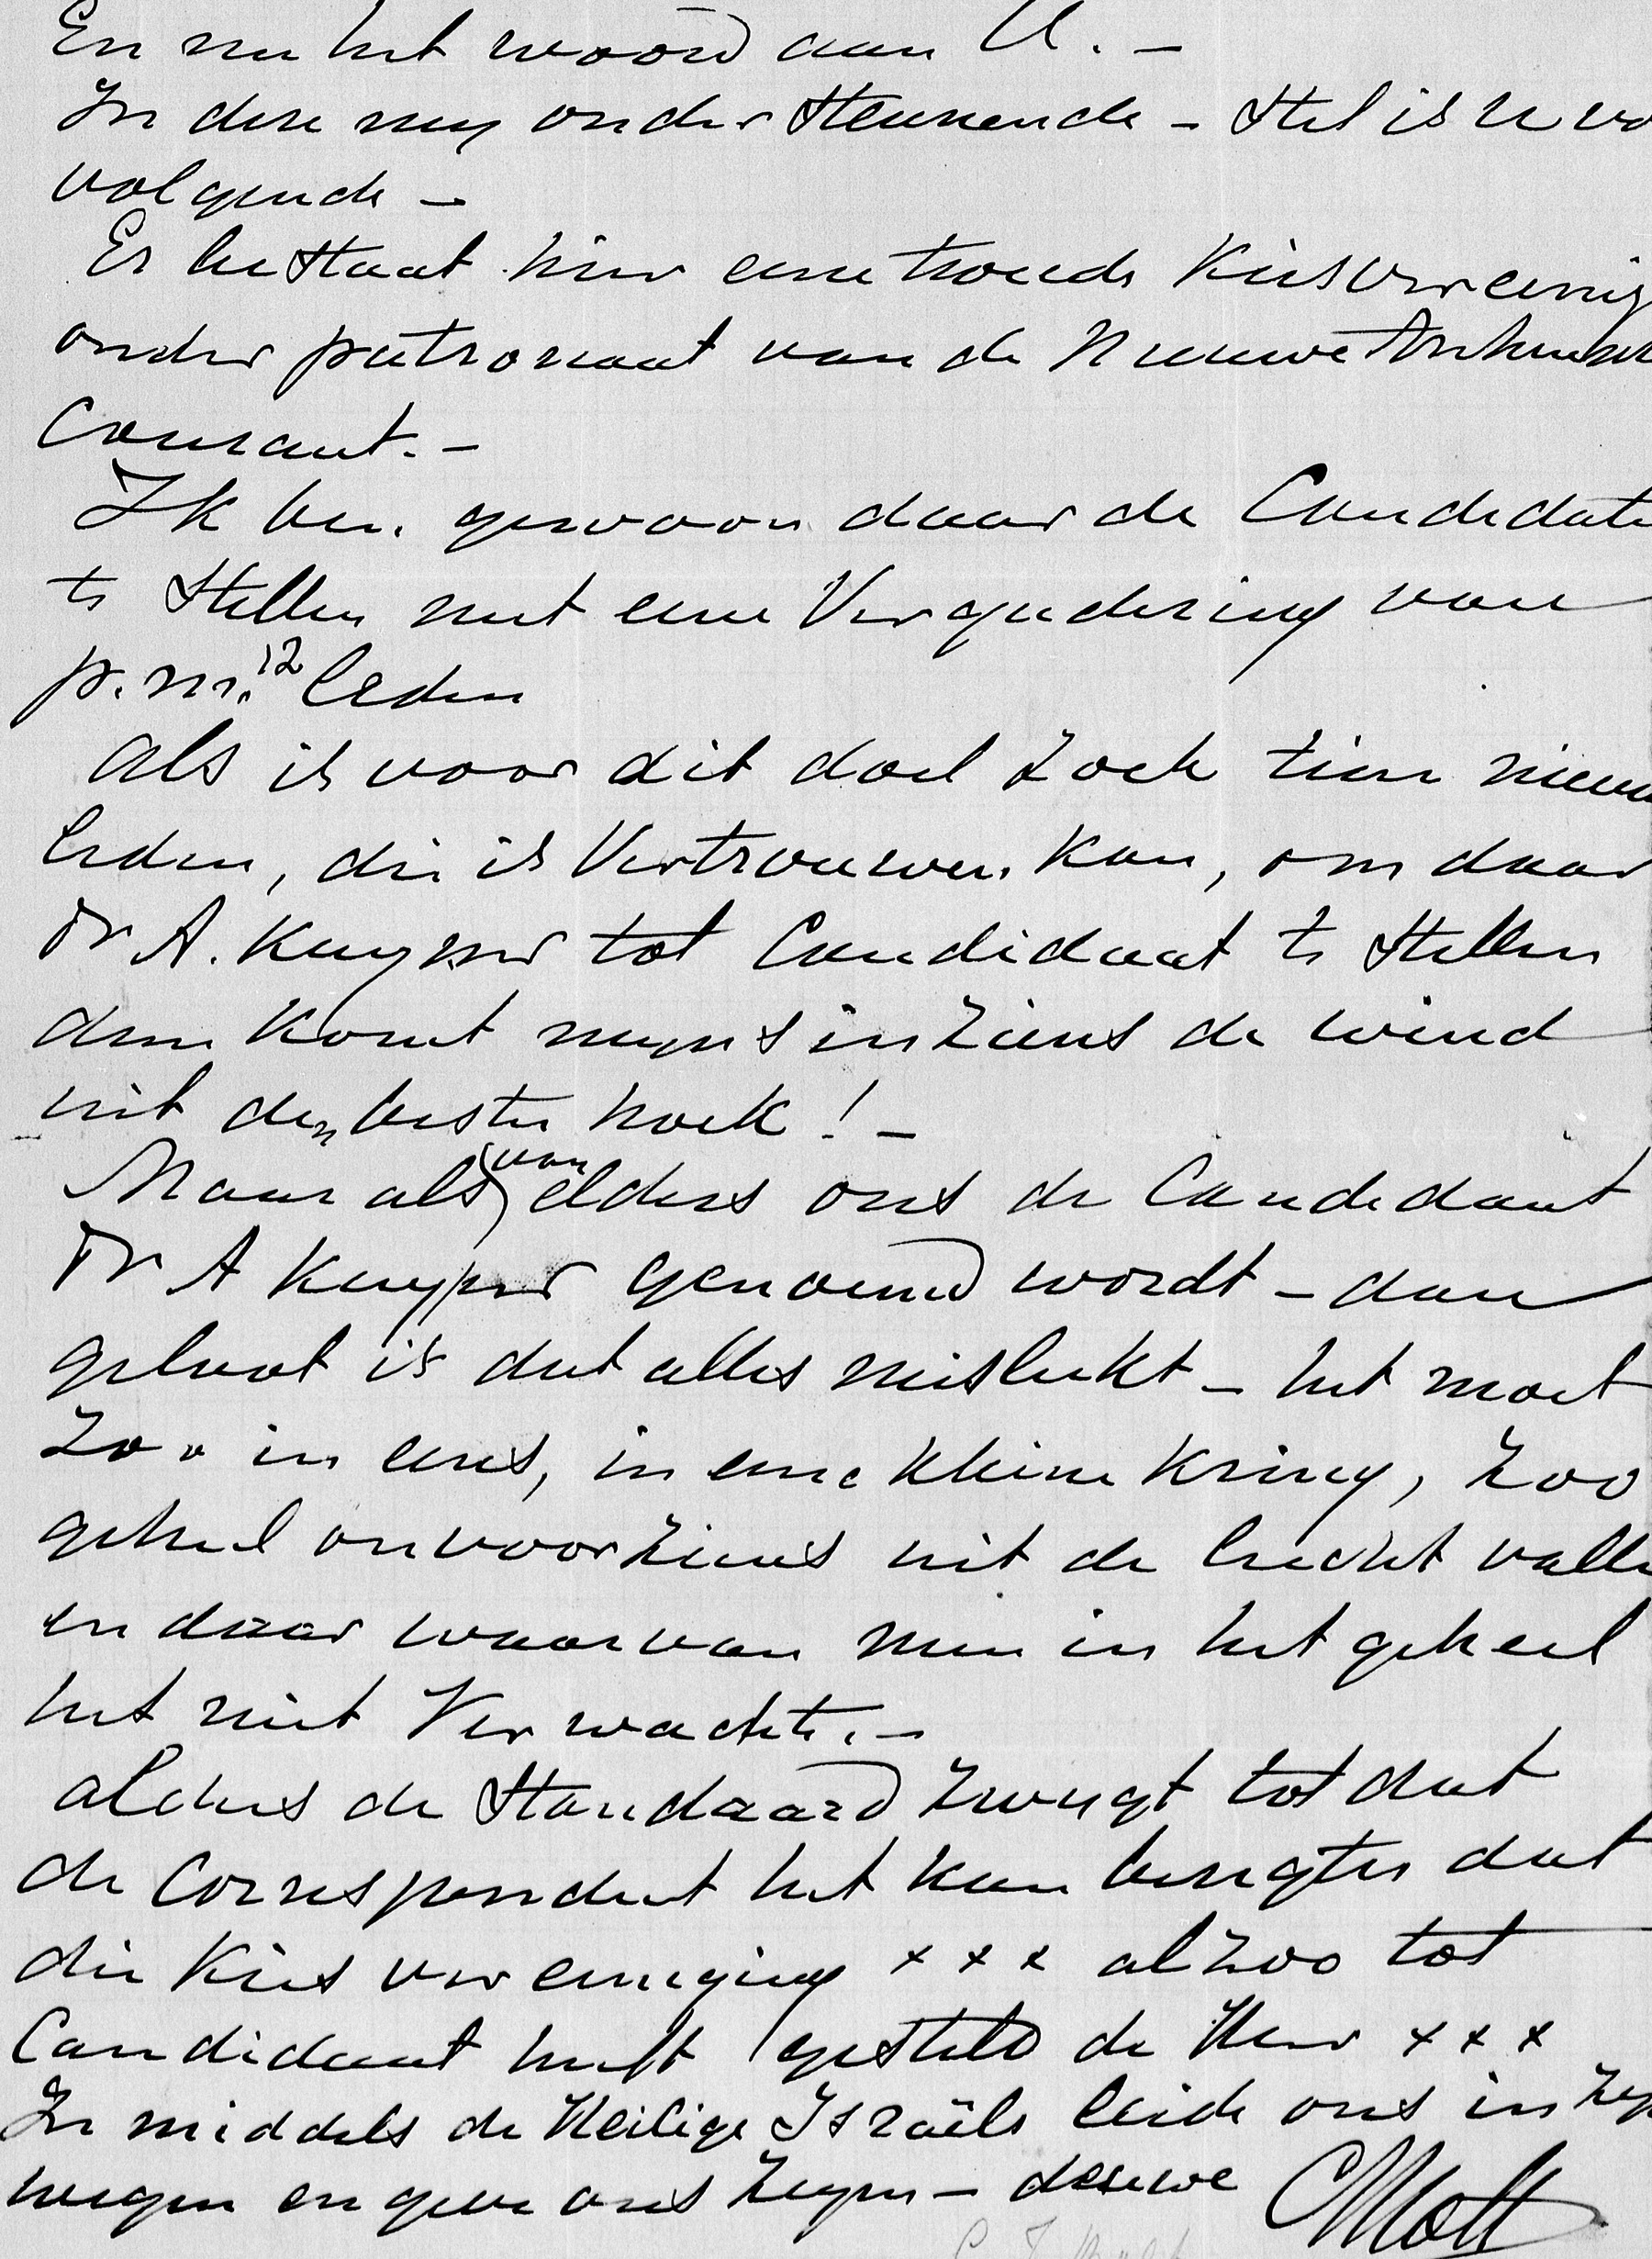 En nu het woord aan U. –
In deze mij ondersteunende – stel ik U vo
volgende –
Er bestaat hier eene troude Kiesvereenig
onder patronaat van de Nieuwe Arnhemsc
Courant. –
Ik ben gewoon daar de Candidate
te stellen met eene Vergadering van
p.m. 12 leden
Als ik voor dit doel zoek tien nieuw
leden, die ik vertrouwen kan, om daar
Dr A. Kuyper tot Candidaat te stellen
dan komt mijns inziens de wind
uit den besten hoek! –
Maar als van elders ons de Candidaat
Dr A Kuyper genoemd wordt – dan
geloof ik dat alles mislukt – het moet
zoo in eens, in eene kleine kring, zoo
geheel onvoorziens uit de lucht valle
en daar waarvan men in het geheel
het niet verwachte. –
aldus de Standaard zwijgt tot dat
de Correspondent het kan berigten dat
die Kiesvereeniging x x x alzoo tot
Candidaat heeft gesteld de Heer x x x
Inmiddels de Heilige Israëls leide ons in Zijn
wegen en geve ons zegen – de uwe
CMott